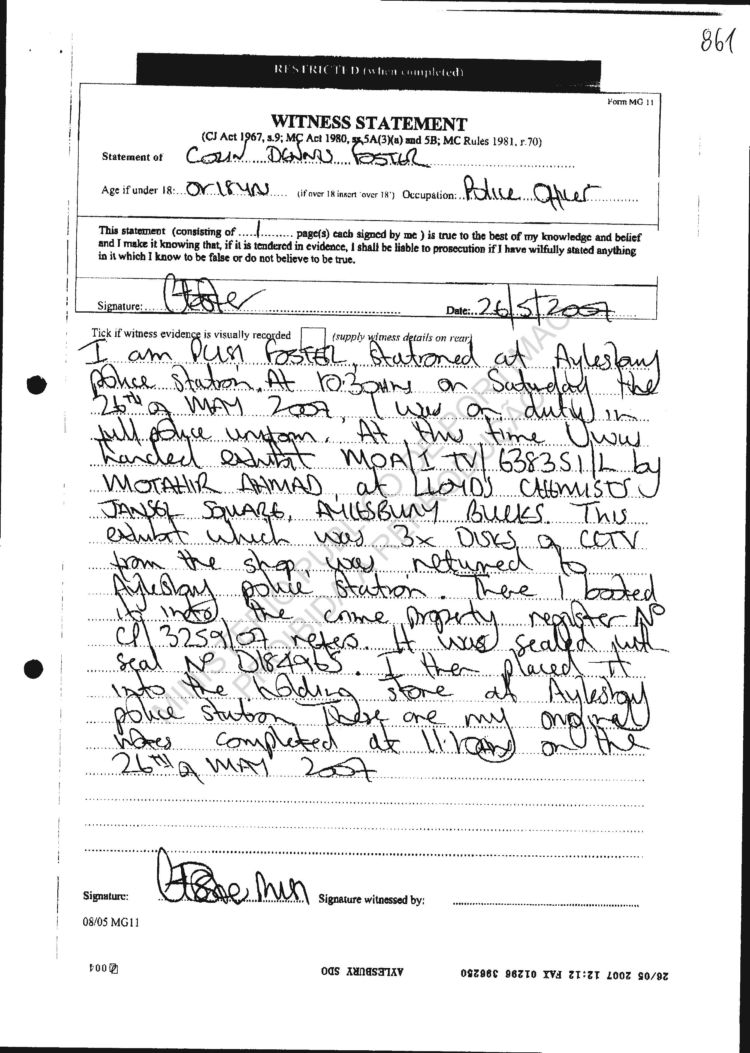 861
RESTRICTED (when completed)
Form MG 11
WITNESS STATEMENT
(CJ Act 1967, s.9; MC Act 1980, ss.5A(3)(a) and 5B; MC Rules 1981, r.70)
Statement of COLIN DENNIS FOSTER
Age if under 18: (if over 18 insert 'over 18') Occupation: Police Officer
This statement (consisting of 1 page(s) each signed by me ) is true to the best of my knowledge and belief
and I make it knowing that, if it is tendered in evidence, I shall be liable to prosecution if I have wilfully stated anything
in it which I know to be false or do not believe to be true.
Signature: Date: 26/5/2007
Tick if witness evidence is visually recorded (supply witness details on rear)
I am FOSTER, Stationed at Aylesbury
police Station. At 1030HRS on Saturday the
26TH of MAY 2007, I was on duty in
full police uniform. At this time I was
handed exhibit MOA/1 TV/638351/L by
MOTAHIR AHMAD, at LLOYDS CHEMISTS
SQUARE, AYLESBURY BUCKS. This
exhibit which was 3x DISKS of CCTV
from the shop, was returned to
Aylesbury police station. There I booked
it into the crime property register No
CP/3259/07 refers. It was sealed with
seal No D184965. I then placed it
into the holding store at Aylesbury
police station. These are my original
notes completed at on the
26TH of MAY 2007
MINISTÉRIO PÚBLICO DE PORTIMÃO
PROIBIDA A REPRODUÇÃO
Signature: Signature witnessed by:
08/05 MG11
004
AYLESBURY SDO
26/05 2007 12:12 FAX 01296 396250